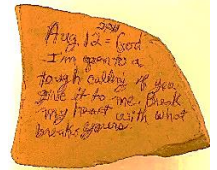 Aug. 12 = God
I'm open to a
tough calling if you
give it to me. Break
my heart with what
breaks yours.